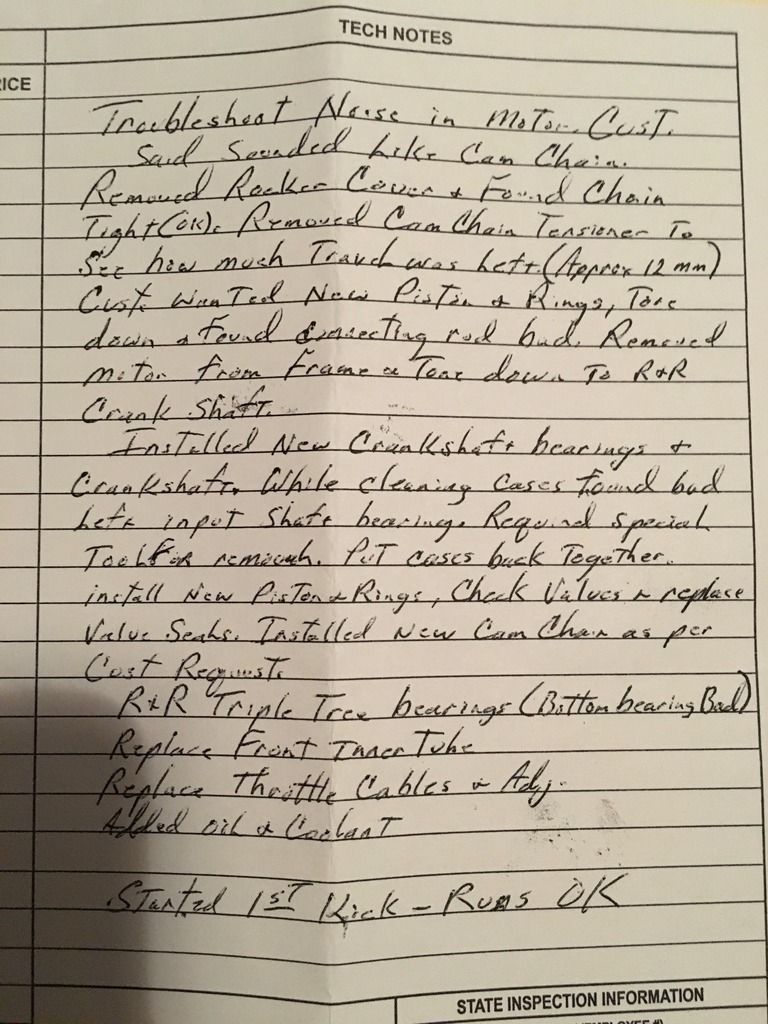 TECH NOTES
RICE
Troubleshoot Noise in Motor. Cust.
Said Sounded Like Cam Chain.
Removed Rocker Cover & Found Chain
Tight (OK). Removed Cam Chain Tensioner To
See how much Travel was Left (Approx 12 mm)
Cust. Wanted New Piston & Rings, Tore
down & Found connecting rod bad. Removed
motor from Frame & Tore down To R&R
Crank Shaft.
Installed New Crankshaft bearings &
Crankshaft. While cleaning Cases found bad
Left input Shaft bearing. Required special
Tool For removal. Put cases back Together.
install New Piston & Rings, Check Valves & replace
Valve Seals. Installed New Cam Chain as per
Cost Request.
R&R Triple Tree bearings (Bottom bearing Bad)
Replace Front Inner Tube
Replace Throttle Cables & Adj.
Added oil & Coolant
Started 1ST Kick - Runs OK
STATE INSPECTION INFORMATION